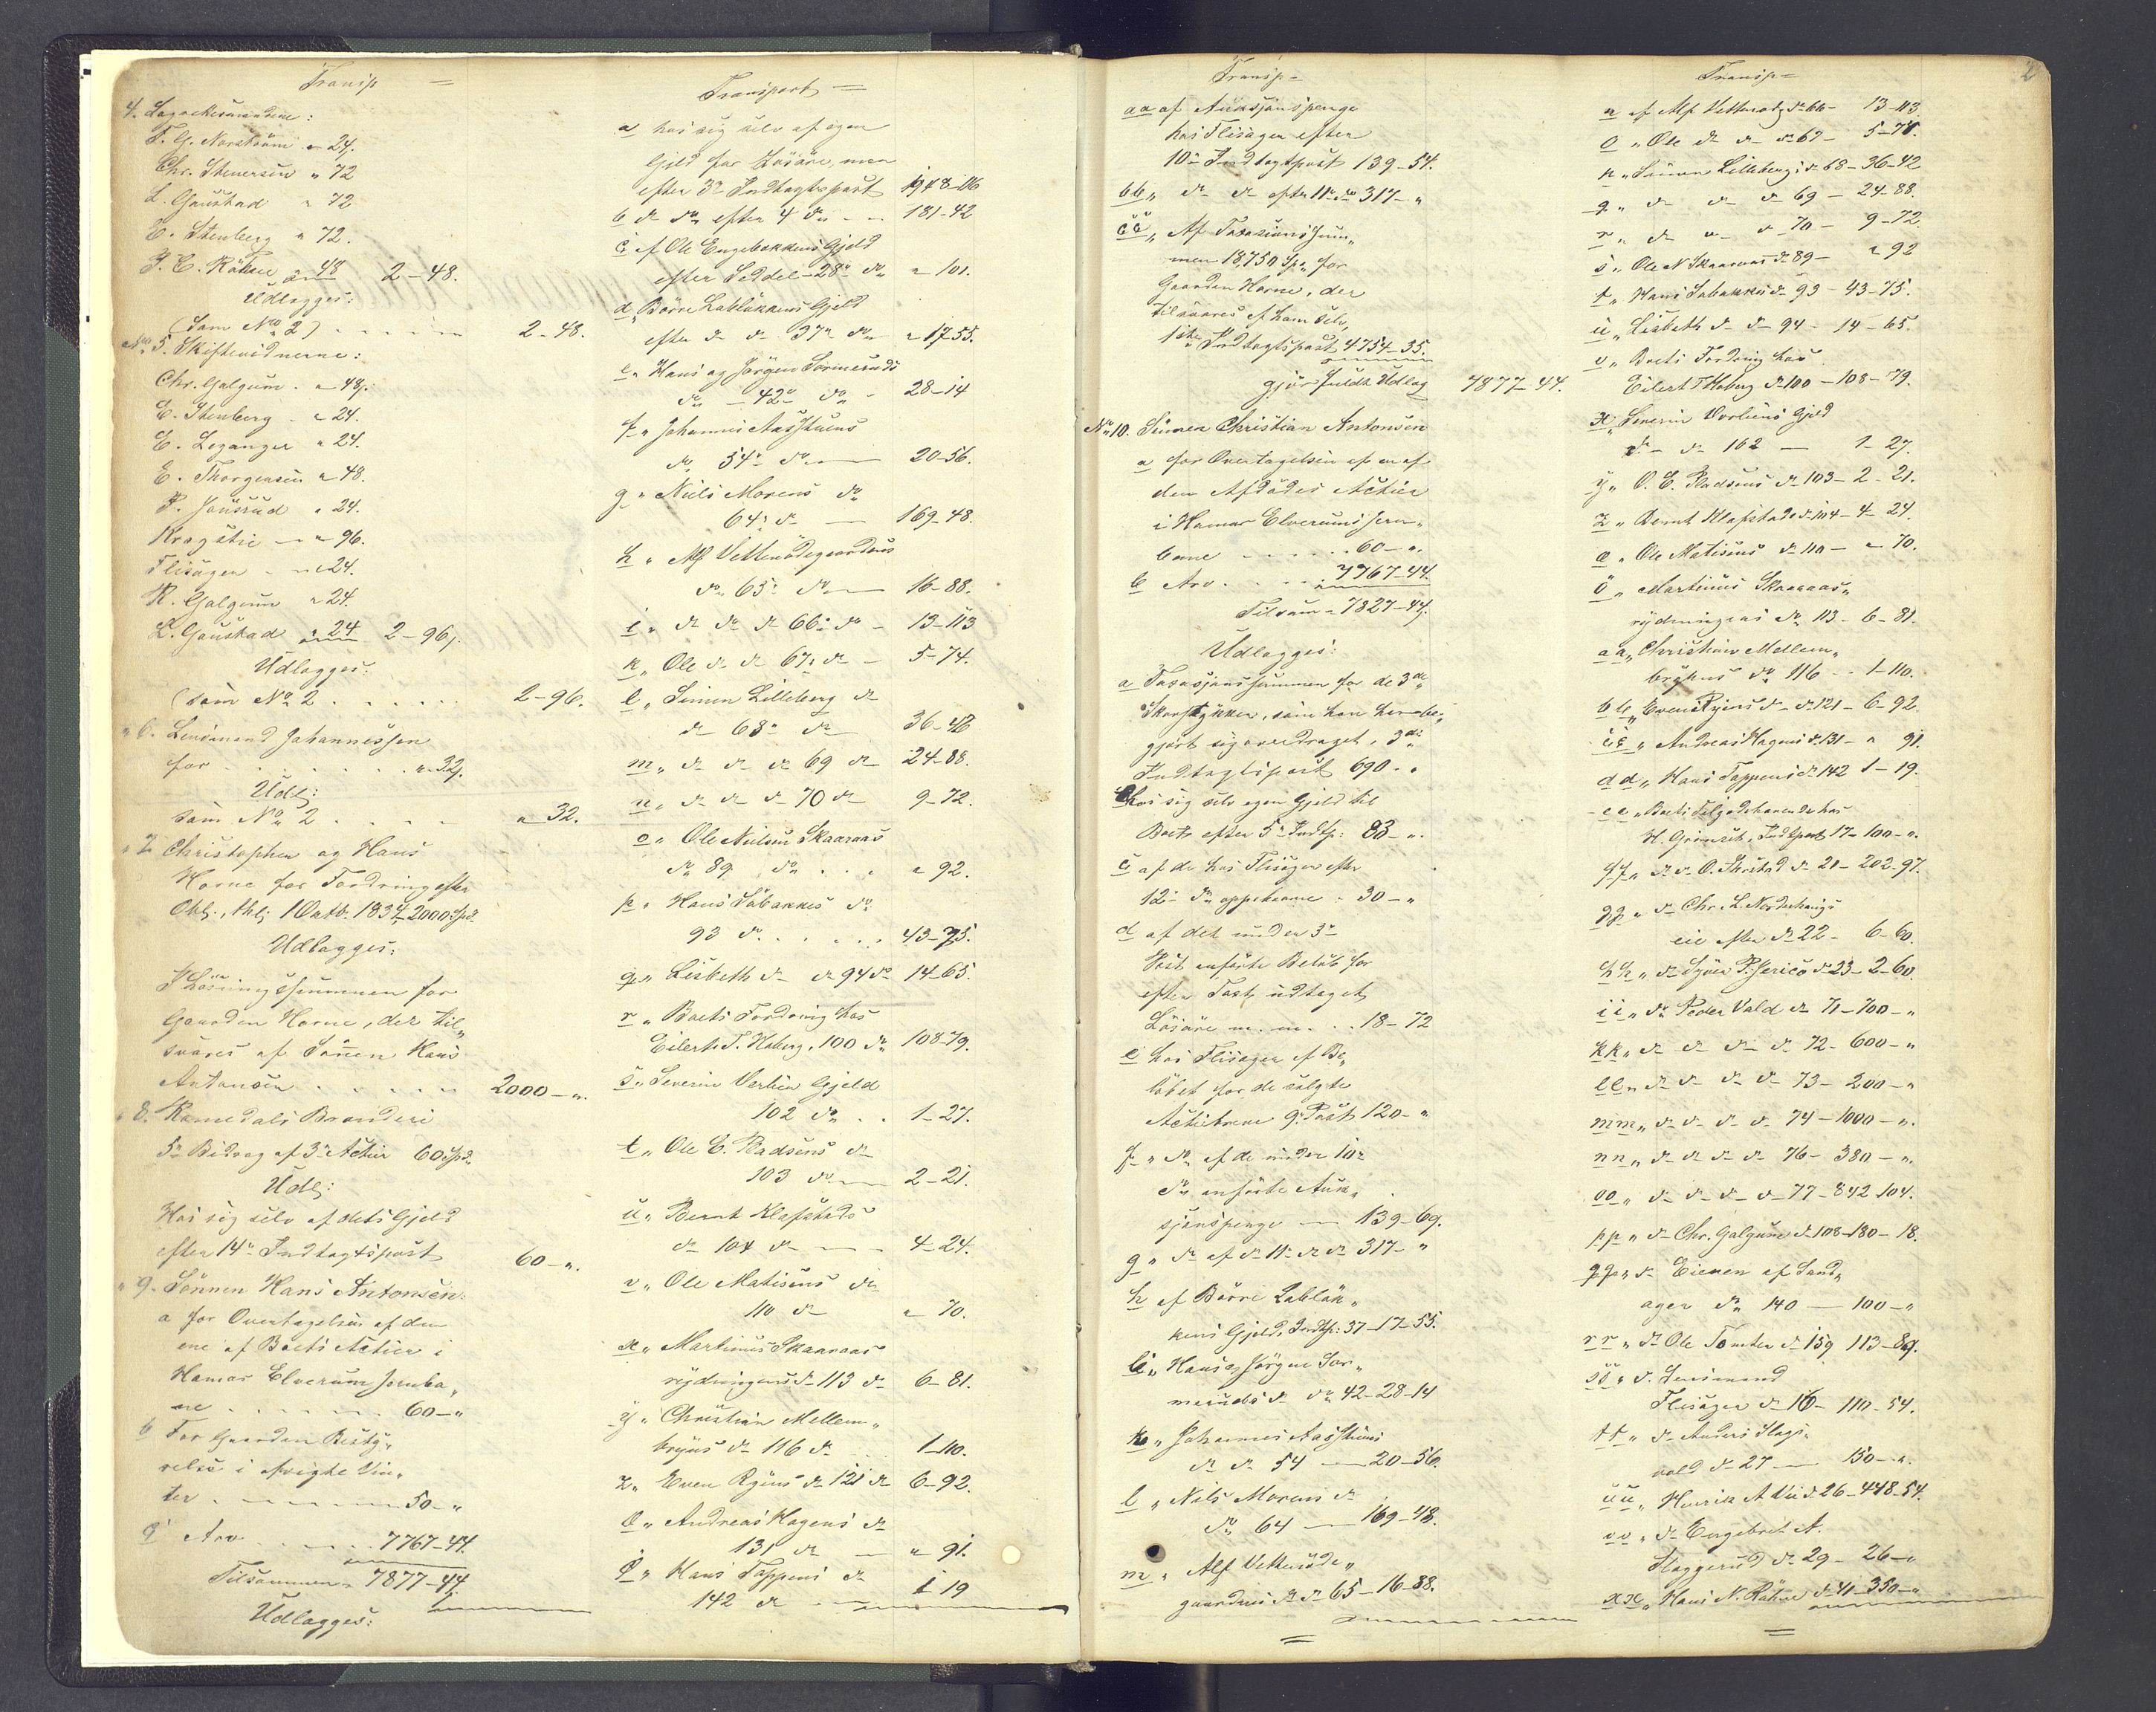 Transp =
4. Lagrettesmændene:
T. G. Norstrøm " 24.
Chr. Stenersen " 72
L. Gaustad " 72
E. Stenberg " 72.
" 48 2-48.
Udlægges:
(Som No 2) 2-48.
No 5. Skiftevidnerne:
Chr. Galgum " 48.
E. Stenberg " 24.
E. Leganger " 24.
E. Thorgersen " 48.
P. Jønsrud " 24.
" 96.
Flisager " 24.
K. Galgum " 24.
L. Gaustad " 24 2-96.
Udlægges:
(som No 2 2-96.
" 6. Lensmand Johannessen
for " 32.
Udl:
som No 2 " 32.
" 7 Christopher og Hans
Horne for Fordring efter
Obl. thl. 1 Octb. 1834 2000 Spd.
Udlægges:
I Løsningssummen for
Gaarden Horne, der til„
svares af Sønnen Hans
Antonsen 2000-".
" 8. Romedals Brænderi
5te Bidrag af 3de Actier 60 Spd.
Udl:
Hos sig selv af dets Gjeld
efter 14de Indtægtspost 60-".
" 9. Sønnen Hans Antonsen:
a for Overtagelsen af den
ene af Boets Actier i
Hamar Elverum Jernba„
ne 60-"
b For Gaarden Besty„
relse i afvigte Vin„
ter 50-"
c Arv 7767-44.
Tilsammen 7877-44.
Udlægges:
Transport =
a hos sig selv af egen
Gjeld for Løsøre, m.m
efter 3de Indtægtspost
b do do efter 4 do 181-42
c af Ole Engebakkens Gjeld
efter Seddel 28de do " 101.
d " Børre Labløkkens Gjeld
efter do do 37te do " 17-55.
e " Hans og Jørgen Sormeruds
do 42de do 28-14
f " Johannes Aasstuens
do 54de do 20-56.
g " Niels Morens do
64de do 169-48.
h " Alf Vettenødegaardens
do 65de do 16-88.
i " do do do 66de do 13-113
k " Ole do do 67de do 5-74.
l " Simen Lilleberg do
do 68de do 36-42
m " do do do 69 do 24-88.
n " do do do 70 do 9-72.
o " Ole Nielsen Skaaraas
do 89 do " 92.
p " Hans Sæbakkes do
93 do 43-75.
q " Lisbeth do do 94 do 14-65.
r " Boets Fordring hos
Eilert T. Hoberg, 100 do 108-79.
s " Severin Verlien Gjeld
102 do 1-27.
t " Ole E. Radsens do
103 do 2-21.
u " Bernt Klafstads
do 104 do 4-24.
v " Ole Matisens do
110 do " 70.
x " Martinus Skaaraas
rydningens do 113 do 6-81.
y " Christian Mellem„
bryns do 116 do 1-110.
z " Even Ryens do 121 do 6-92.
æ " Andreas Hagens do
131 do " 91.
ø " Hans Tappens do
142 do 1-19
Transp =
aa af Auksjonspenge
hos Flisager efter
10de Indtægtspost 139-54.
bb " do do efter 11te do 317-"
cc " Af Taxasionssum„
men 18,750 Spd. for
Gaarden Horne, der
tilsvares af ham selv,
1ste Indtægtspost 4754-35.
gjør fuldt Udlæg 7877-44.
No 10. Sønnen Christian Antonsen
a for Overtagelsen af en af
den Afdødes Actier
i Hamar Elverums Jern„
bane 60-".
b Arv 7767-44.
Tilsam 7827-44.
Udlægges:
a Taxasjonssummen for de 3de
Skovstykker, som han har be„
gjært sig overdraget, 3de
Indtægtspost 690-"
b hos sig selv egen Gjeld til
Boet efter 5te Indtp: 83-".
c af de hos Flisager efter
12te do oppebaarne 30-"
d af det under 3de
Post anførte Beløb for
efter Taxt udtaget
Løsøre m.m. 18-72
e hos Flisager af Be„
løbet for de solgte
Actiebreve 9de Post 120-"
f " do af de under 10de
do anførte Auk„
sjonspenge 139-69.
g " do af do 11te do do 317-"
h af Børre Labløk„
kens Gjeld, Indtp: 37-17-55.
i " Hans og Jørgen Sor„
meruds do do 42-28-14
k " Johannes Aasstuens
do do 54 20-56.
l " Nils Morens do
do 64 169-48.
m " Alf Vettenøde„
gaardens do do 65-16-88.
Transp =
2
n af Alf do 66- 13-113
o " Ole do do do 67- 5-74.
p " Simen Lilleberg: do 68-36-42
q " do do do 69- 24-88.
r " do do do 70- 9-72.
s " Ole N Skaaraas do 89- " 92
t " Hans Sæbakkes do 93- 43-75.
u " Lisbeth do do 94- 14-65.
v " Boets Fordring hos
Eilert T Hoberg do 100-108-79.
x " Severin Vorliens Gjeld
do do 162 1-27.
y " O. E. Radsens do 103-2-21.
z " Bernt Klafstads do 104-4-24.
æ " Ole Matisens do 110- " 70.
ø " Martinus Skaaraas„
rydningens do 113-6-81.
aa " Christian Mellem„
bryens do 116 1-110.
bb " Even Ryens do do 121-6-92.
cc " Andreas Hagens do 131- " 91.
dd " Hans Tappens do 142 1-19.
ee " Boets Tilgodehavende hos
H. Grønset, Indtpost 17-100-".
ff " do do O. Thrstad do 21-202-97.
gg " do Chr. L. Nordenhougs
eie efter do 22- 6-60.
hh " do Syver P. Jerico do 23-2-60.
ii " do Peder Vald do 71-700-"
kk " do do do do 72-600-"
ll " do do do do 73-200-"
mm " do do do do 74-1000-".
nn " do do do do 76-380-".
oo " do do do do 77-842-104.
pp " do Chr. Galgum do 108-180-18.
qq " do Eieren af Sand„
ager do 140 100-"
rr " do Ole Tomter do 159 113-89.
ss " do Lensmand
Flisager do 16- 110-54.
tt " do Anders Slags„
vold do 27 150-".
uu " Henrik A do 26-448-54.
vv " do Engebret A.
Slaggerud do 29- 26-"
xx " Hans N. do 41-350-"